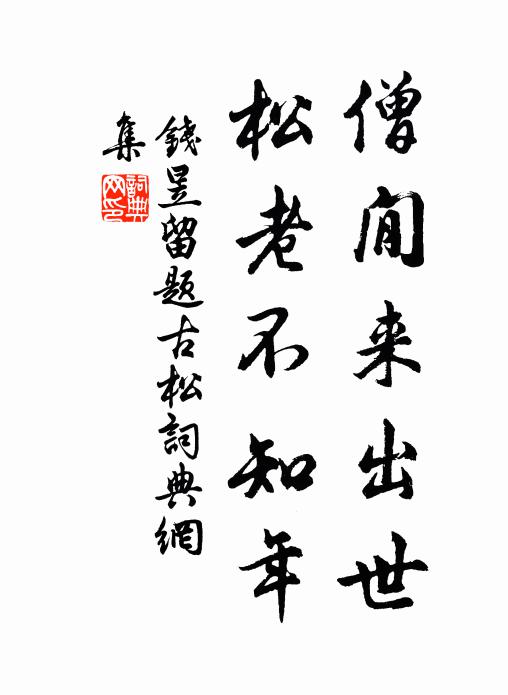 僧閒来出世
松老不知年
錢昱留題古松詞典網
集
詞典網印